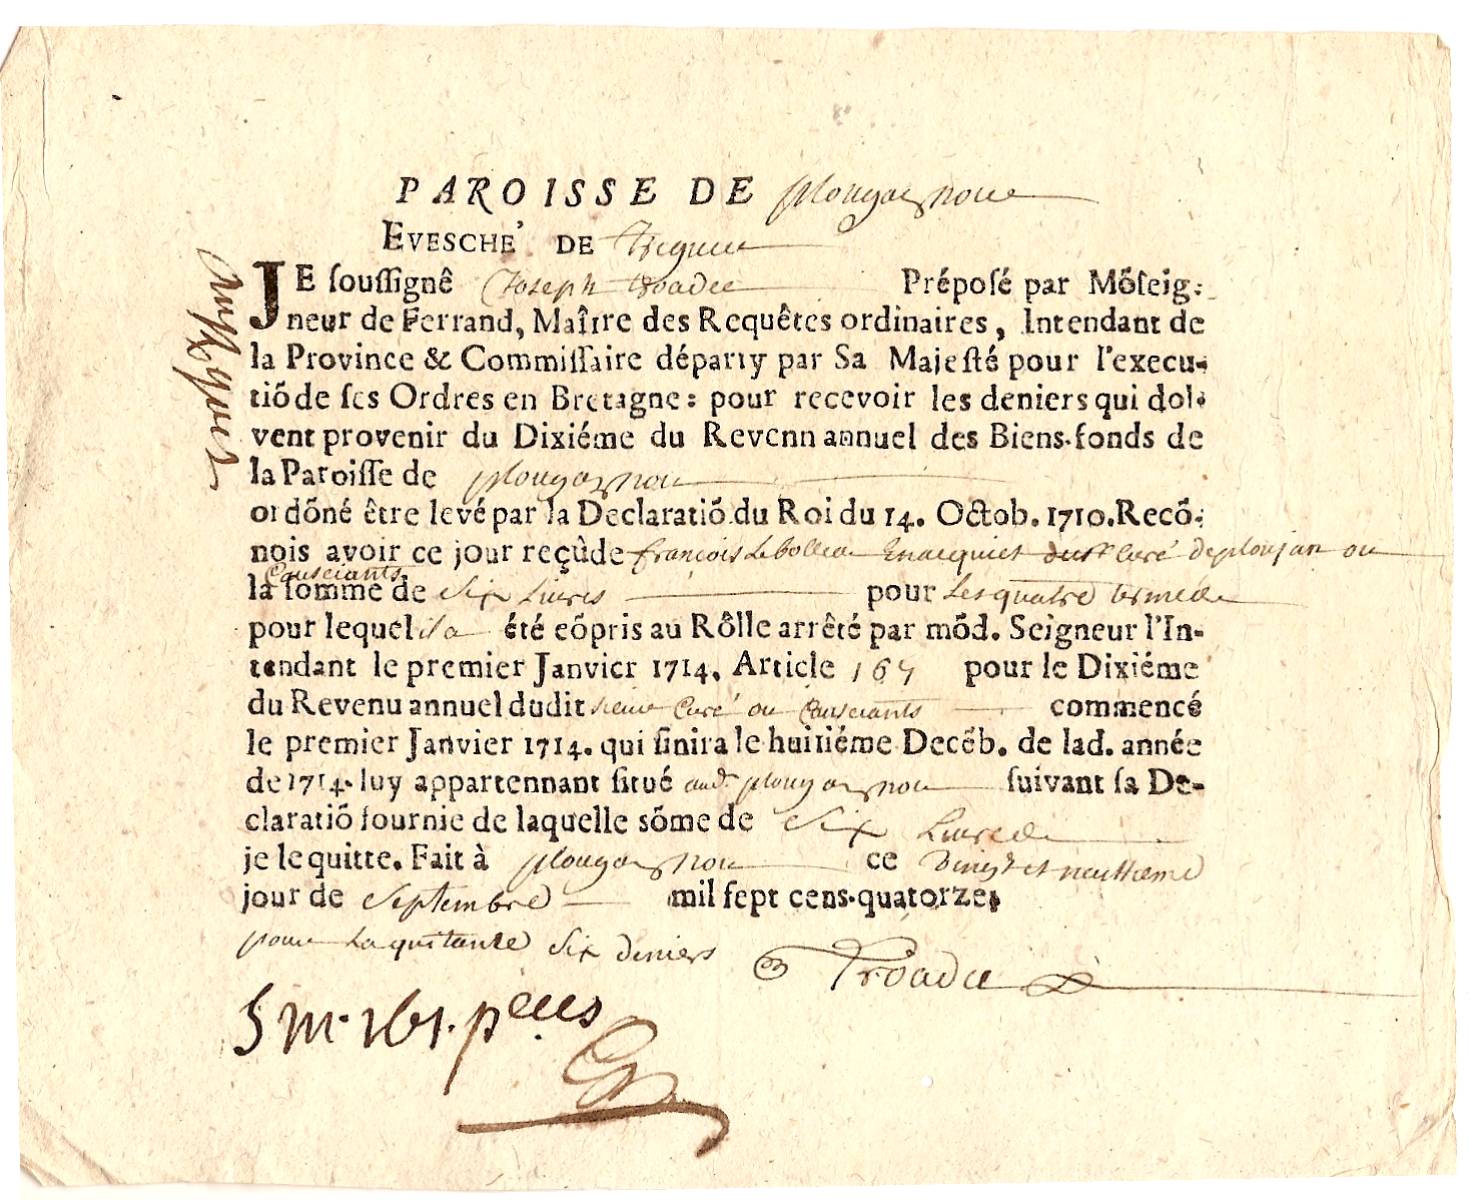 PAROISSE DE plougasnou
EVESCHE' DE Treguier
JE soussignê Joseph troadec Préposé par Mõseig-
neur de Ferrand, Maître des Requêtes ordinaires, Intendant de
la Province & Commissaire départy par Sa Majesté pour l'execu-
tiõ de ses Ordres en Bretagne: pour recevoir les deniers qui doi-
vent provenir du Dixiéme du Revenn annuel des Biens-fonds de
la Paroisse de plougasnou
ordõné être levé par la Declaratiõ du Roi du 14. Octob. 1710. Recõ-
nois avoir ce jour reçû de francois Lebolloa curé de ploujan ou
Causeiants
la somme de Six Livres pour Les quatre
pour lequel il a été cõpris au Rôlle arrêté par mõd. Seigneur l'In-
tendant le premier Janvier 1714. Article 167 pour le Dixiéme
du Revenu annuel dudit sieur Curé ou Causeiants commencé
le premier Janvier 1714. qui finira le huitiéme Decẽb. de lad. année
de 1714. luy appartennant situé aud. plougasnou suivant sa De-
claratiõ fournie de laquelle sõme de Six Livres
je le quitte. Fait à plougasnou ce vingt et neuffieme
jour de Septembre mil sept cens-quatorze.
pour La quitance Six deniers Troadec